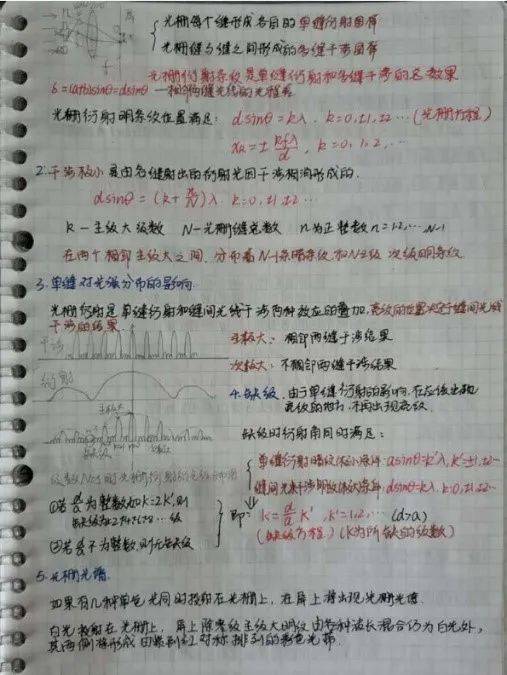 光栅每个缝形成各自的单缝衍射图样
光栅缝与缝之间形成的多缝干涉图样
光栅衍射条纹是单缝衍射和多缝干涉的总效果
δ=(a+b)sinθ=dsinθ —相邻两缝光线的光程差
光栅衍射明条纹位置满足: dsinθ=kλ, k=0,±1,±2… (光栅方程)
xk=± kfλ/d, k=0,1,2,…
2.干涉极小是由各缝射出的衍射光因干涉相消形成的.
dsinθ=(k+n/N)λ. k=0,±1,±2…
k—主级大级数 N—光栅缝总数 n为正整数n=1,2,…N-1
在两个相邻主级大之间, 分布着N-1条暗条纹和N-2级 次级明条纹.
3.单缝对光强分布的影响.
光栅衍射是单缝衍射和缝间光线干涉两种效应的叠加,亮纹的位置决定于缝间光线
干涉的结果
干涉
主极大: 相邻两缝干涉结果
次极大: 不相邻两缝干涉结果
衍射
主极大
缺级
4.缺级. 由于单缝衍射的影响,在应该出现
亮纹的地方,不再出现亮纹.
缺级时衍射角同时满足:
单缝衍射暗纹极小条件:asinθ=k'λ,k'=±1,±2…
缝间光束干涉明纹极大条件:dsinθ=kλ,k=0,±1,±2…
缝数N=5时光栅衍射的光强分布图
①若d/a为整数如k=2k',则
缺级为±2,±4,±6…级
②若d/a不为整数,则无缺级
即: k=d/a k', k'=1,2,… (d>a)
(缺级方程) (k为所缺的级数)
5.光栅光谱.
如果有几种单色光同时投射在光栅上,在屏上将出现光栅光谱.
白光投射在光栅上, 屏上除零级主极大明纹由各种波长混合仍为白光外,
其两侧将形成由紫到红对称排列的彩色光带.